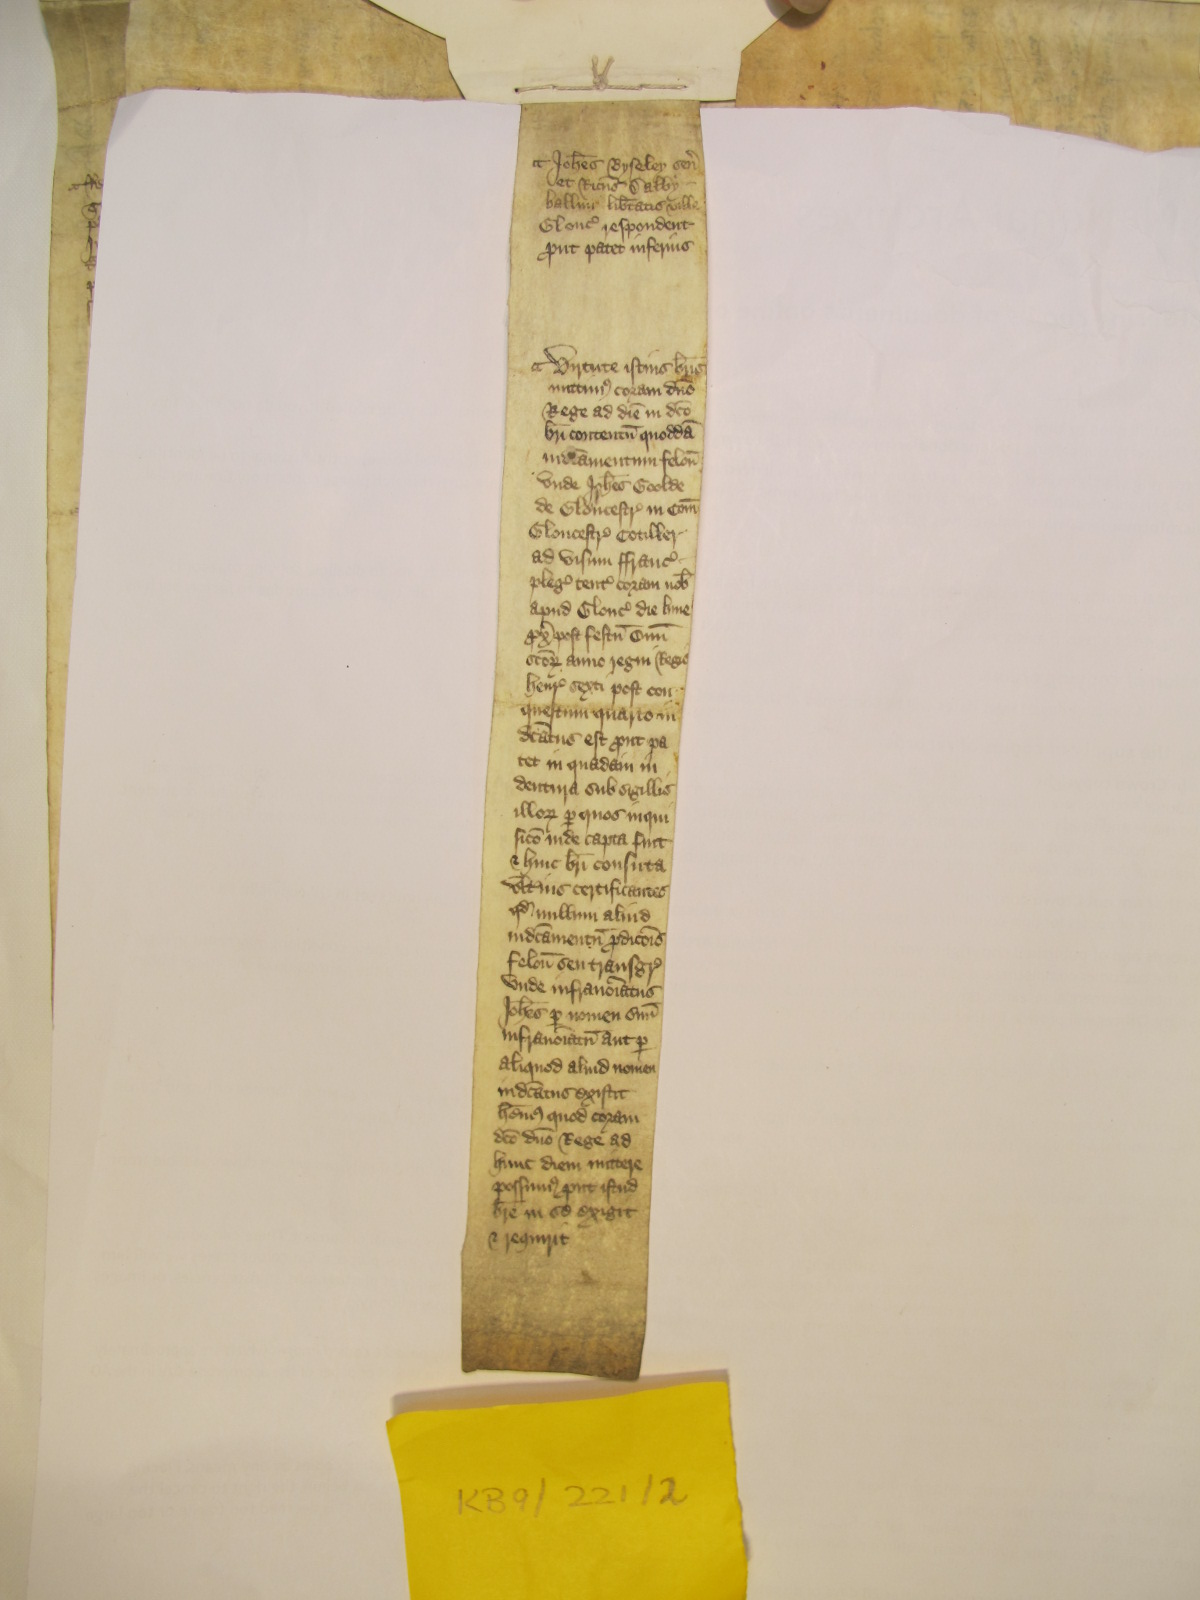 Joh̄es Byseley sen̄
et Ric̄us Salby
balliui lib̄tatis ville
Glouc̉ respondent
ꝓut patet inferius
Virtute istius br̄is
mittim⁹ coram dn̄o
Rege ad diē in dc̄o
br̄i contentū quoddā
indc̄amentum felon̄
vnde Joh̄es Goolde
de Glouc̄estr̉ in Com̄
Gloucestr̉ Cotiller
ad visum ffranc̉
pleg̉ tent̉ coram nob̄
apud Glouc̉ die lune
ꝓx̄ post festū Om̄i
sc̄oꝝ anno regni Regis
henr̉ sexti post con
questum quarto in
dc̄atus est ꝓut pa
tet in quadam in
dentura sub sigillis
illoꝝ ꝑ quos inqui
sic̄o inde capta fuit
⁊ huic br̄i consuta
vlt̄ius certificantes
qd̄ nullum aliud
indc̄amentū p̄dic̄o
felon̄ seu transgr̉
vnde infrano̅iatus
Joh̄es ꝑ nomen suū
infrano̅iatū aut ꝑ
aliquod aliud nomen
indc̄atus existit
hēm⁹ quod coram
dc̄o dn̄o Rege ad
hunc diem mittere
possum⁹ ꝓut istud
br̄e in se exigit
⁊ requirit
KB9/ 221/2